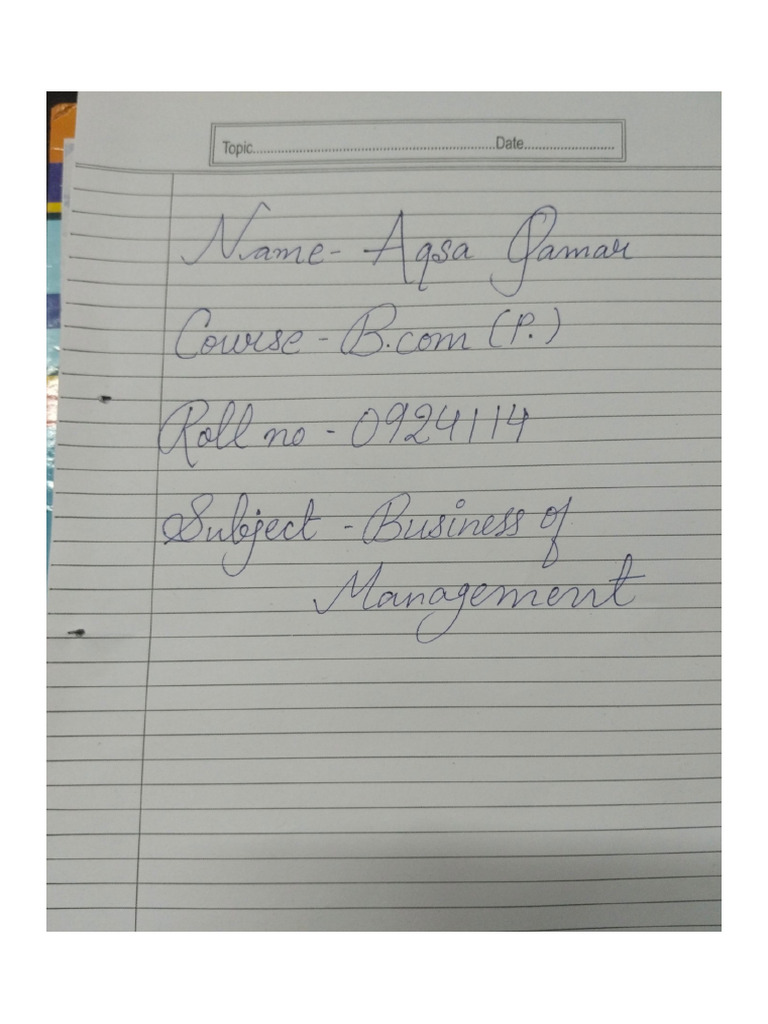 Topic.......................................................................Date..........................
Name- Aqsa Qamar
Course - B.com (P.)
Roll no - 0924114
Subject - Business of
Management